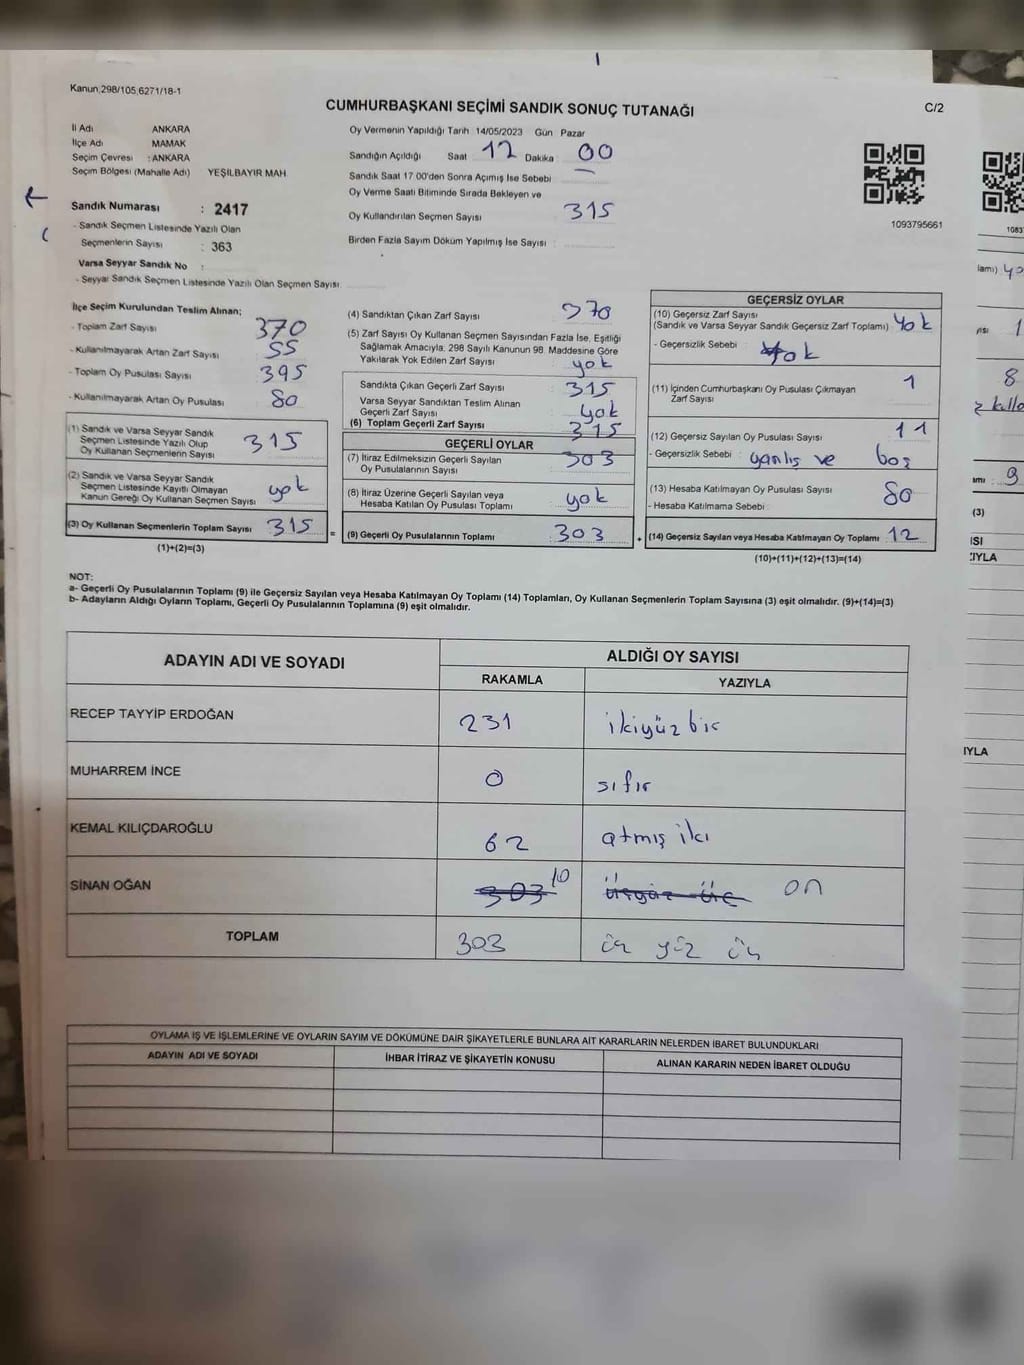 Kanun;298/105,6271/18-1
CUMHURBAŞKANI SEÇİMİ SANDIK SONUÇ TUTANAĞI
C/2
İl Adı ANKARA
İlçe Adı MAMAK
Seçim Çevresi : ANKARA
Seçim Bölgesi (Mahalle Adı) YEŞİLBAYIR MAH.
Oy Vermenin Yapıldığı Tarih 14/05/2023 Gün Pazar
Sandığın Açıldığı Saat 17 Dakika 00
Sandık Saat 17:00'den Sonra Açımış İse Sebebi
Oy Verme Saati Bitiminde Sırada Bekleyen ve
Oy Kullandırılan Seçmen Sayısı 315
Birden Fazla Sayım Döküm Yapılmış İse Sayısı
1093795661
Sandık Numarası : 2417
- Sandık Seçmen Listesinde Yazılı Olan
Seçmenlerin Sayısı : 363
Varsa Seyyar Sandık No :
- Seyyar Sandık Seçmen Listesinde Yazılı Olan Seçmen Sayısı
İlçe Seçim Kurulundan Teslim Alınan;
- Toplam Zarf Sayısı 370
- Kullanılmayarak Artan Zarf Sayısı 55
- Toplam Oy Pusulası Sayısı 395
- Kullanılmayarak Artan Oy Pusulası 80
(1) Sandık ve Varsa Seyyar Sandık
Seçmen Listesinde Yazılı Olup
Oy Kullanan Seçmenlerin Sayısı 315
(2) Sandık ve Varsa Seyyar Sandık
Seçmen Listesinde Kayıtlı Olmayan
Kanun Gereği Oy Kullanan Seçmen Sayısı yok
(3) Oy Kullanan Seçmenlerin Toplam Sayısı 315
(1)+(2)=(3)
=
(4) Sandıktan Çıkan Zarf Sayısı 370
(5) Zarf Sayısı Oy Kullanan Seçmen Sayısından Fazla İse, Eşitliği
Sağlamak Amacıyla; 298 Sayılı Kanunun 98. Maddesine Göre
Yakılarak Yok Edilen Zarf Sayısı yok
Sandıkta Çıkan Geçerli Zarf Sayısı 315
Varsa Seyyar Sandıktan Teslim Alınan
Geçerli Zarf Sayısı yok
(6) Toplam Geçerli Zarf Sayısı 315
GEÇERLİ OYLAR
(7) İtiraz Edilmeksizin Geçerli Sayılan
Oy Pusulalarının Sayısı 303
(8) İtiraz Üzerine Geçerli Sayılan veya
Hesaba Katılan Oy Pusulası Toplamı yok
(9) Geçerli Oy Pusulalarının Toplamı 303
+
GEÇERSİZ OYLAR
(10) Geçersiz Zarf Sayısı
(Sandık ve Varsa Seyyar Sandık Geçersiz Zarf Toplamı) Yok
- Geçersizlik Sebebi : Yok
(11) İçinden Cumhurbaşkanı Oy Pusulası Çıkmayan
Zarf Sayısı 1
(12) Geçersiz Sayılan Oy Pusulası Sayısı 11
- Geçersizlik Sebebi : yanlış ve boş
(13) Hesaba Katılmayan Oy Pusulası Sayısı 80
- Hesaba Katılmama Sebebi
(14) Geçersiz Sayılan veya Hesaba Katılmayan Oy Toplamı : 12
(10)+(11)+(12)+(13)=(14)
NOT:
a- Geçerli Oy Pusulalarının Toplamı (9) ile Geçersiz Sayılan veya Hesaba Katılmayan Oy Toplamı (14) Toplamları, Oy Kullanan Seçmenlerin Toplam Sayısına (3) eşit olmalıdır. (9)+(14)=(3)
b- Adayların Aldığı Oyların Toplamı, Geçerli Oy Pusulalarının Toplamına (9) eşit olmalıdır.
ADAYIN ADI VE SOYADI
ALDIĞI OY SAYISI
RAKAMLA YAZIYLA
RECEP TAYYİP ERDOĞAN 231 ikiyüz bir
MUHARREM İNCE 0 sıfır
KEMAL KILIÇDAROĞLU 62 atmış iki
SİNAN OĞAN 303 10 üçyüz üç on
TOPLAM 303 üç yüz üç
OYLAMA İŞ VE İŞLEMLERİNE VE OYLARIN SAYIM VE DÖKÜMÜNE DAİR ŞİKAYETLERLE BUNLARA AİT KARARLARIN NELERDEN İBARET BULUNDUKLARI
ADAYIN ADI VE SOYADI İHBAR İTİRAZ VE ŞİKAYETİN KONUSU ALINAN KARARIN NEDEN İBARET OLDUĞU
1083
lamı)
8
9
(3)
ISI
YLA
IYLA